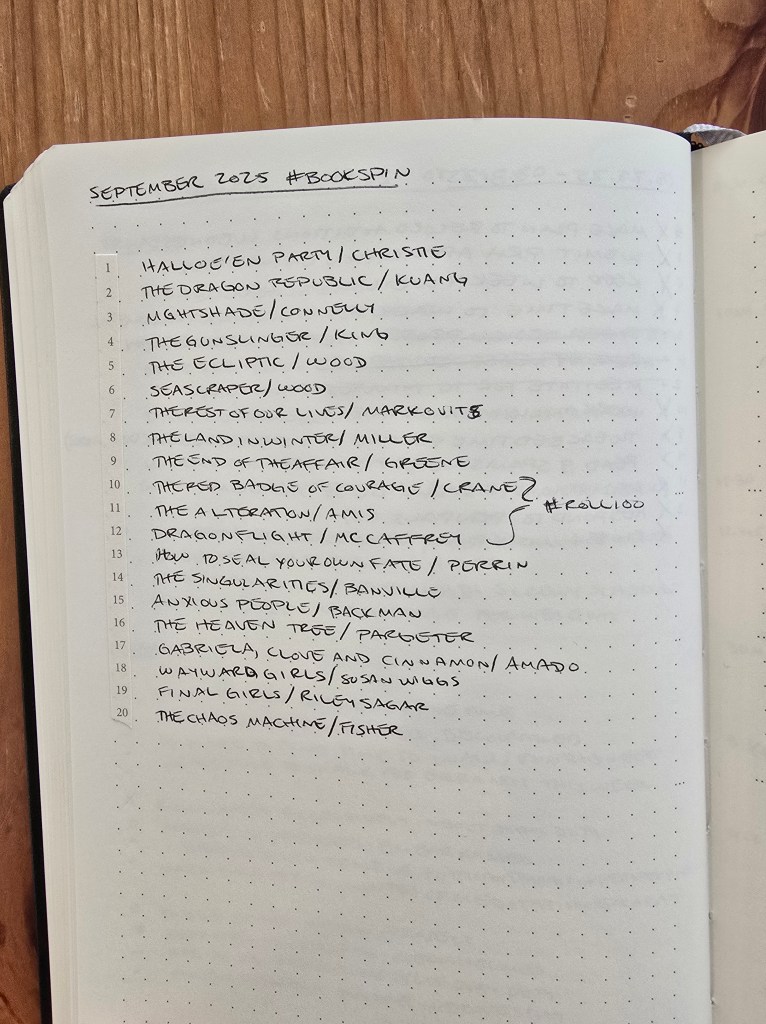 SEPTEMBER 2025 #BOOKSPIN
1 HALLOE'EN PARTY / CHRISTIE
2 THE DRAGON REPUBLIC / KUANG
3 NIGHTSHADE / CONNELLY
4 THE GUNSLINGER / KING
5 THE ECLIPTIC / WOOD
6 SEASCRAPER / WOOD
7 THE REST OF OUR LIVES / MARKOVITS
8 THE LAND IN WINTER / MILLER
9 THE END OF THE AFFAIR / GREENE
10 THE RED BADGE OF COURAGE / CRANE
#ROLL100
11 THE ALTERATION / AMIS
12 DRAGONFLIGHT / MCCAFFREY
13 HOW TO SEAL YOUR OWN FATE / PERRIN
14 THE SINGULARITIES / BANVILLE
15 ANXIOUS PEOPLE / BACKMAN
16 THE HEAVEN TREE / PARGETER
17 GABRIELA, CLOVE AND CINNAMON / AMADO
18 WAYWARD GIRLS / SUSAN WIGGS
19 FINAL GIRLS / RILEY SAGAR
20 THE CHAOS MACHINE / FISHER